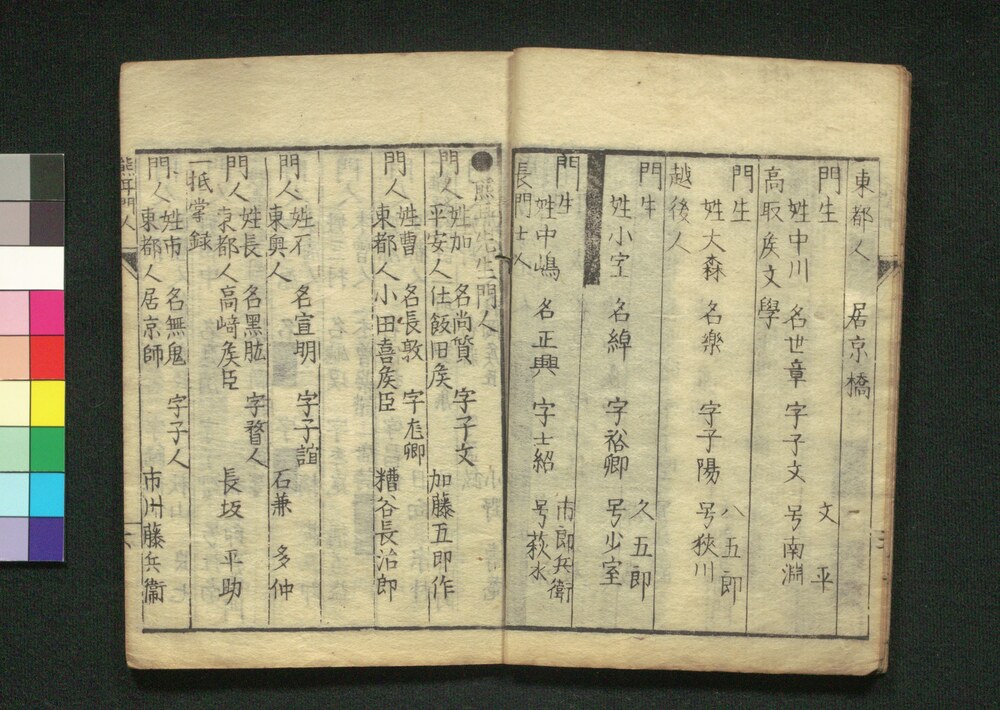 東都人 居京橋
門生 姓中川 名世章 字子文 号南淵 文平
高取矦文學
門生 姓大森 名楽 字子陽 号狹川 八五郎
越後人
門生 姓小室 名綽 字裕卿 号少室 久五郎
門生 姓中嶋 名正興 字士紹 号萩水 市郎兵衛
長門士人
●熊耳先生門人
門人 姓加 名尚質 字子文 加藤五郎作
平安人仕飯田矦
門人 姓曹 名長敦 字 卿 糟谷長治郎
東都人小田喜矦臣
門人 姓石 名宣明 字子誼 石兼多仲
東奥人
門人 姓長 名黒肱 字瞀人 長坂平助
京都人高﨑矦臣
一抵掌録
門人 姓市 名無鬼 字子人 市川藤兵衛
東都人居京師
熊耳門人